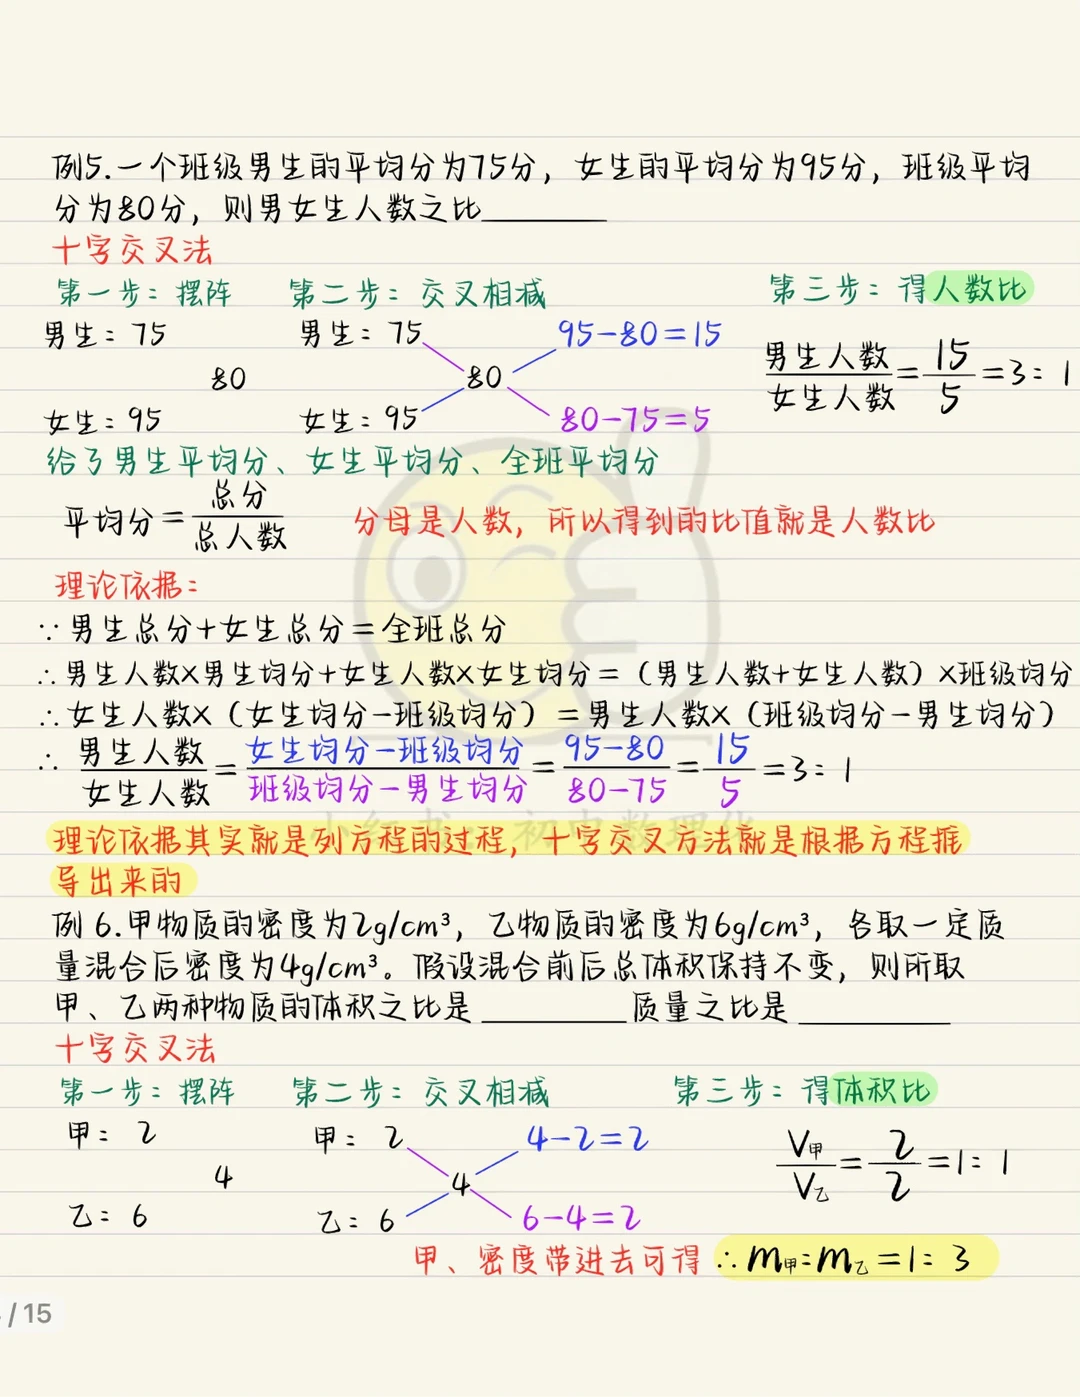 例5.一个班级男生的平均分为75分，女生的平均分为95分，班级平均
分为80分，则男女生人数之比______
十字交叉法
第一步：摆阵 第二步：交叉相减 第三步：得人数比
男生：75 男生：75 95-80=15
80 80 男生人数/女生人数=15/5=3：1
女生：95 女生：95 80-75=5
给了男生平均分、女生平均分、全班平均分
平均分=总分/总人数 分母是人数，所以得到的比值就是人数比
理论依据：
∵男生总分+女生总分=全班总分
∴男生人数×男生均分+女生人数×女生均分=（男生人数+女生人数）×班级均分
∴女生人数×（女生均分-班级均分）=男生人数×（班级均分-男生均分）
∴男生人数/女生人数=女生均分-班级均分/班级均分-男生均分=95-80/80-75=15/5=3：1
小红书：初中数理化
理论依据其实就是列方程的过程，十字交叉方法就是根据方程推
导出来的
例6.甲物质的密度为2g/cm³，乙物质的密度为6g/cm³，各取一定质
量混合后密度为4g/cm³。假设混合前后总体积保持不变，则所取
甲、乙两种物质的体积之比是______质量之比是______
十字交叉法
第一步：摆阵 第二步：交叉相减 第三步：得体积比
甲：2 甲：2 4-2=2
4 4 V甲/V乙=2/2=1：1
乙：6 乙：6 6-4=2
甲、密度带进去可得 ∴m甲：m乙=1：3
/15